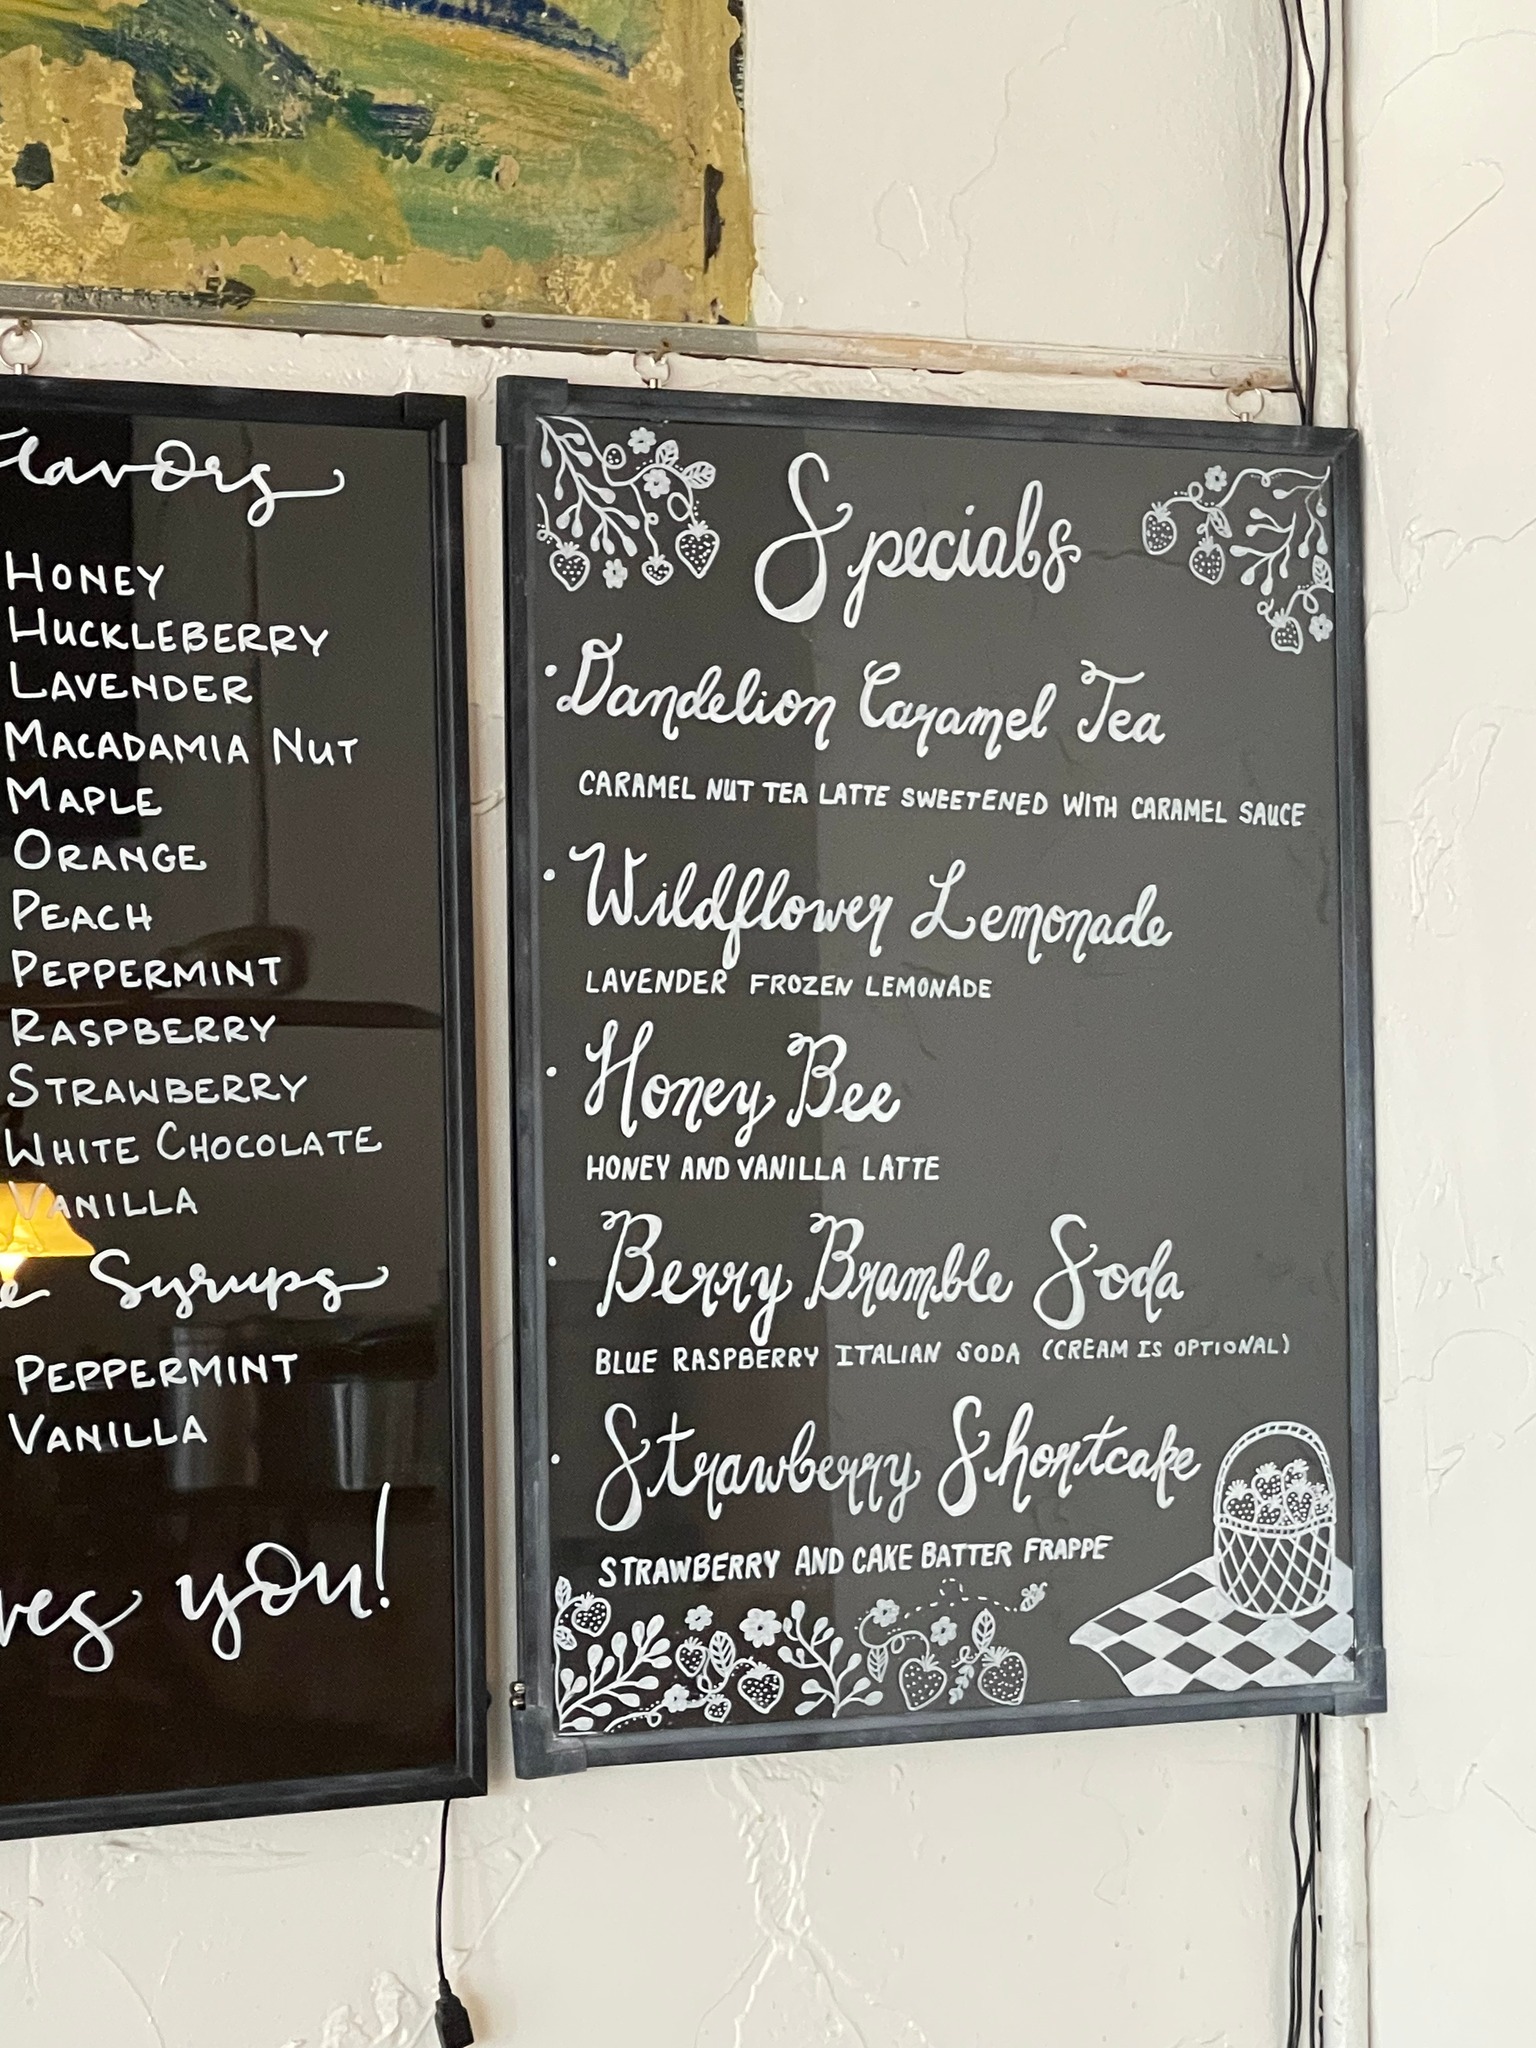 Flavors
HONEY
HUCKLEBERRY
LAVENDER
MACADAMIA NUT
MAPLE
ORANGE
PEACH
PEPPERMINT
RASPBERRY
STRAWBERRY
WHITE CHOCOLATE
VANILLA
Syrups
PEPPERMINT
VANILLA
you!
Specials
• Dandelion Caramel Tea
CARAMEL NUT TEA LATTE SWEETENED WITH CARAMEL SAUCE
• Wildflower Lemonade
LAVENDER FROZEN LEMONADE
• Honey Bee
HONEY AND VANILLA LATTE
• Berry Bramble Soda
BLUE RASPBERRY ITALIAN SODA (CREAM IS OPTIONAL)
• Strawberry Shortcake
STRAWBERRY AND CAKE BATTER FRAPPE